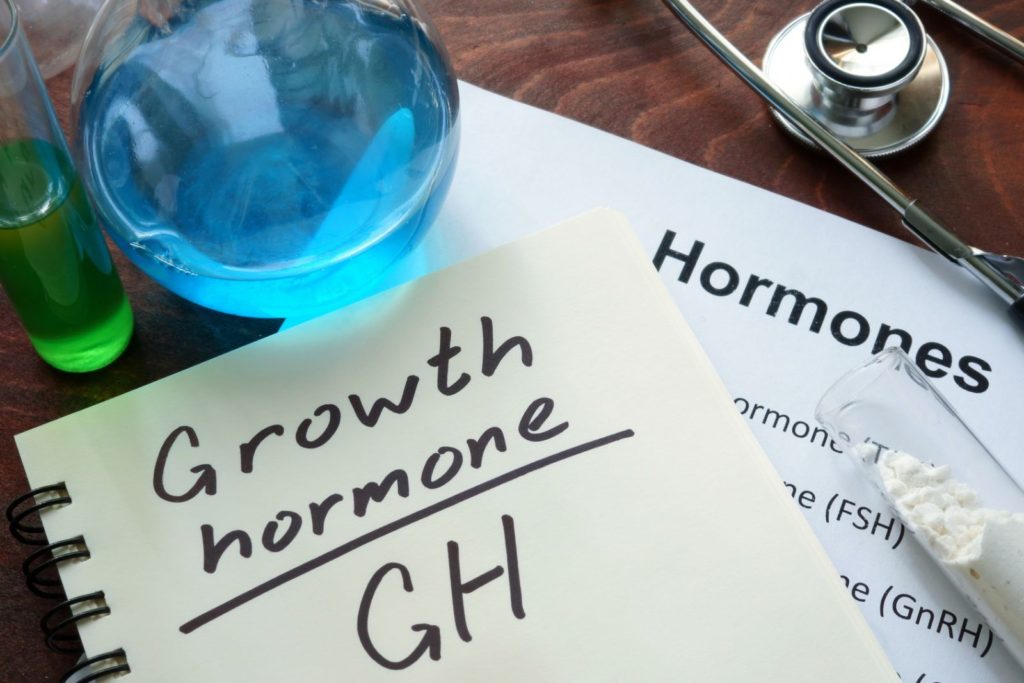 Growth
hormone
GH
Hormones
ormone
ne (FSH)
ne (GnRH)